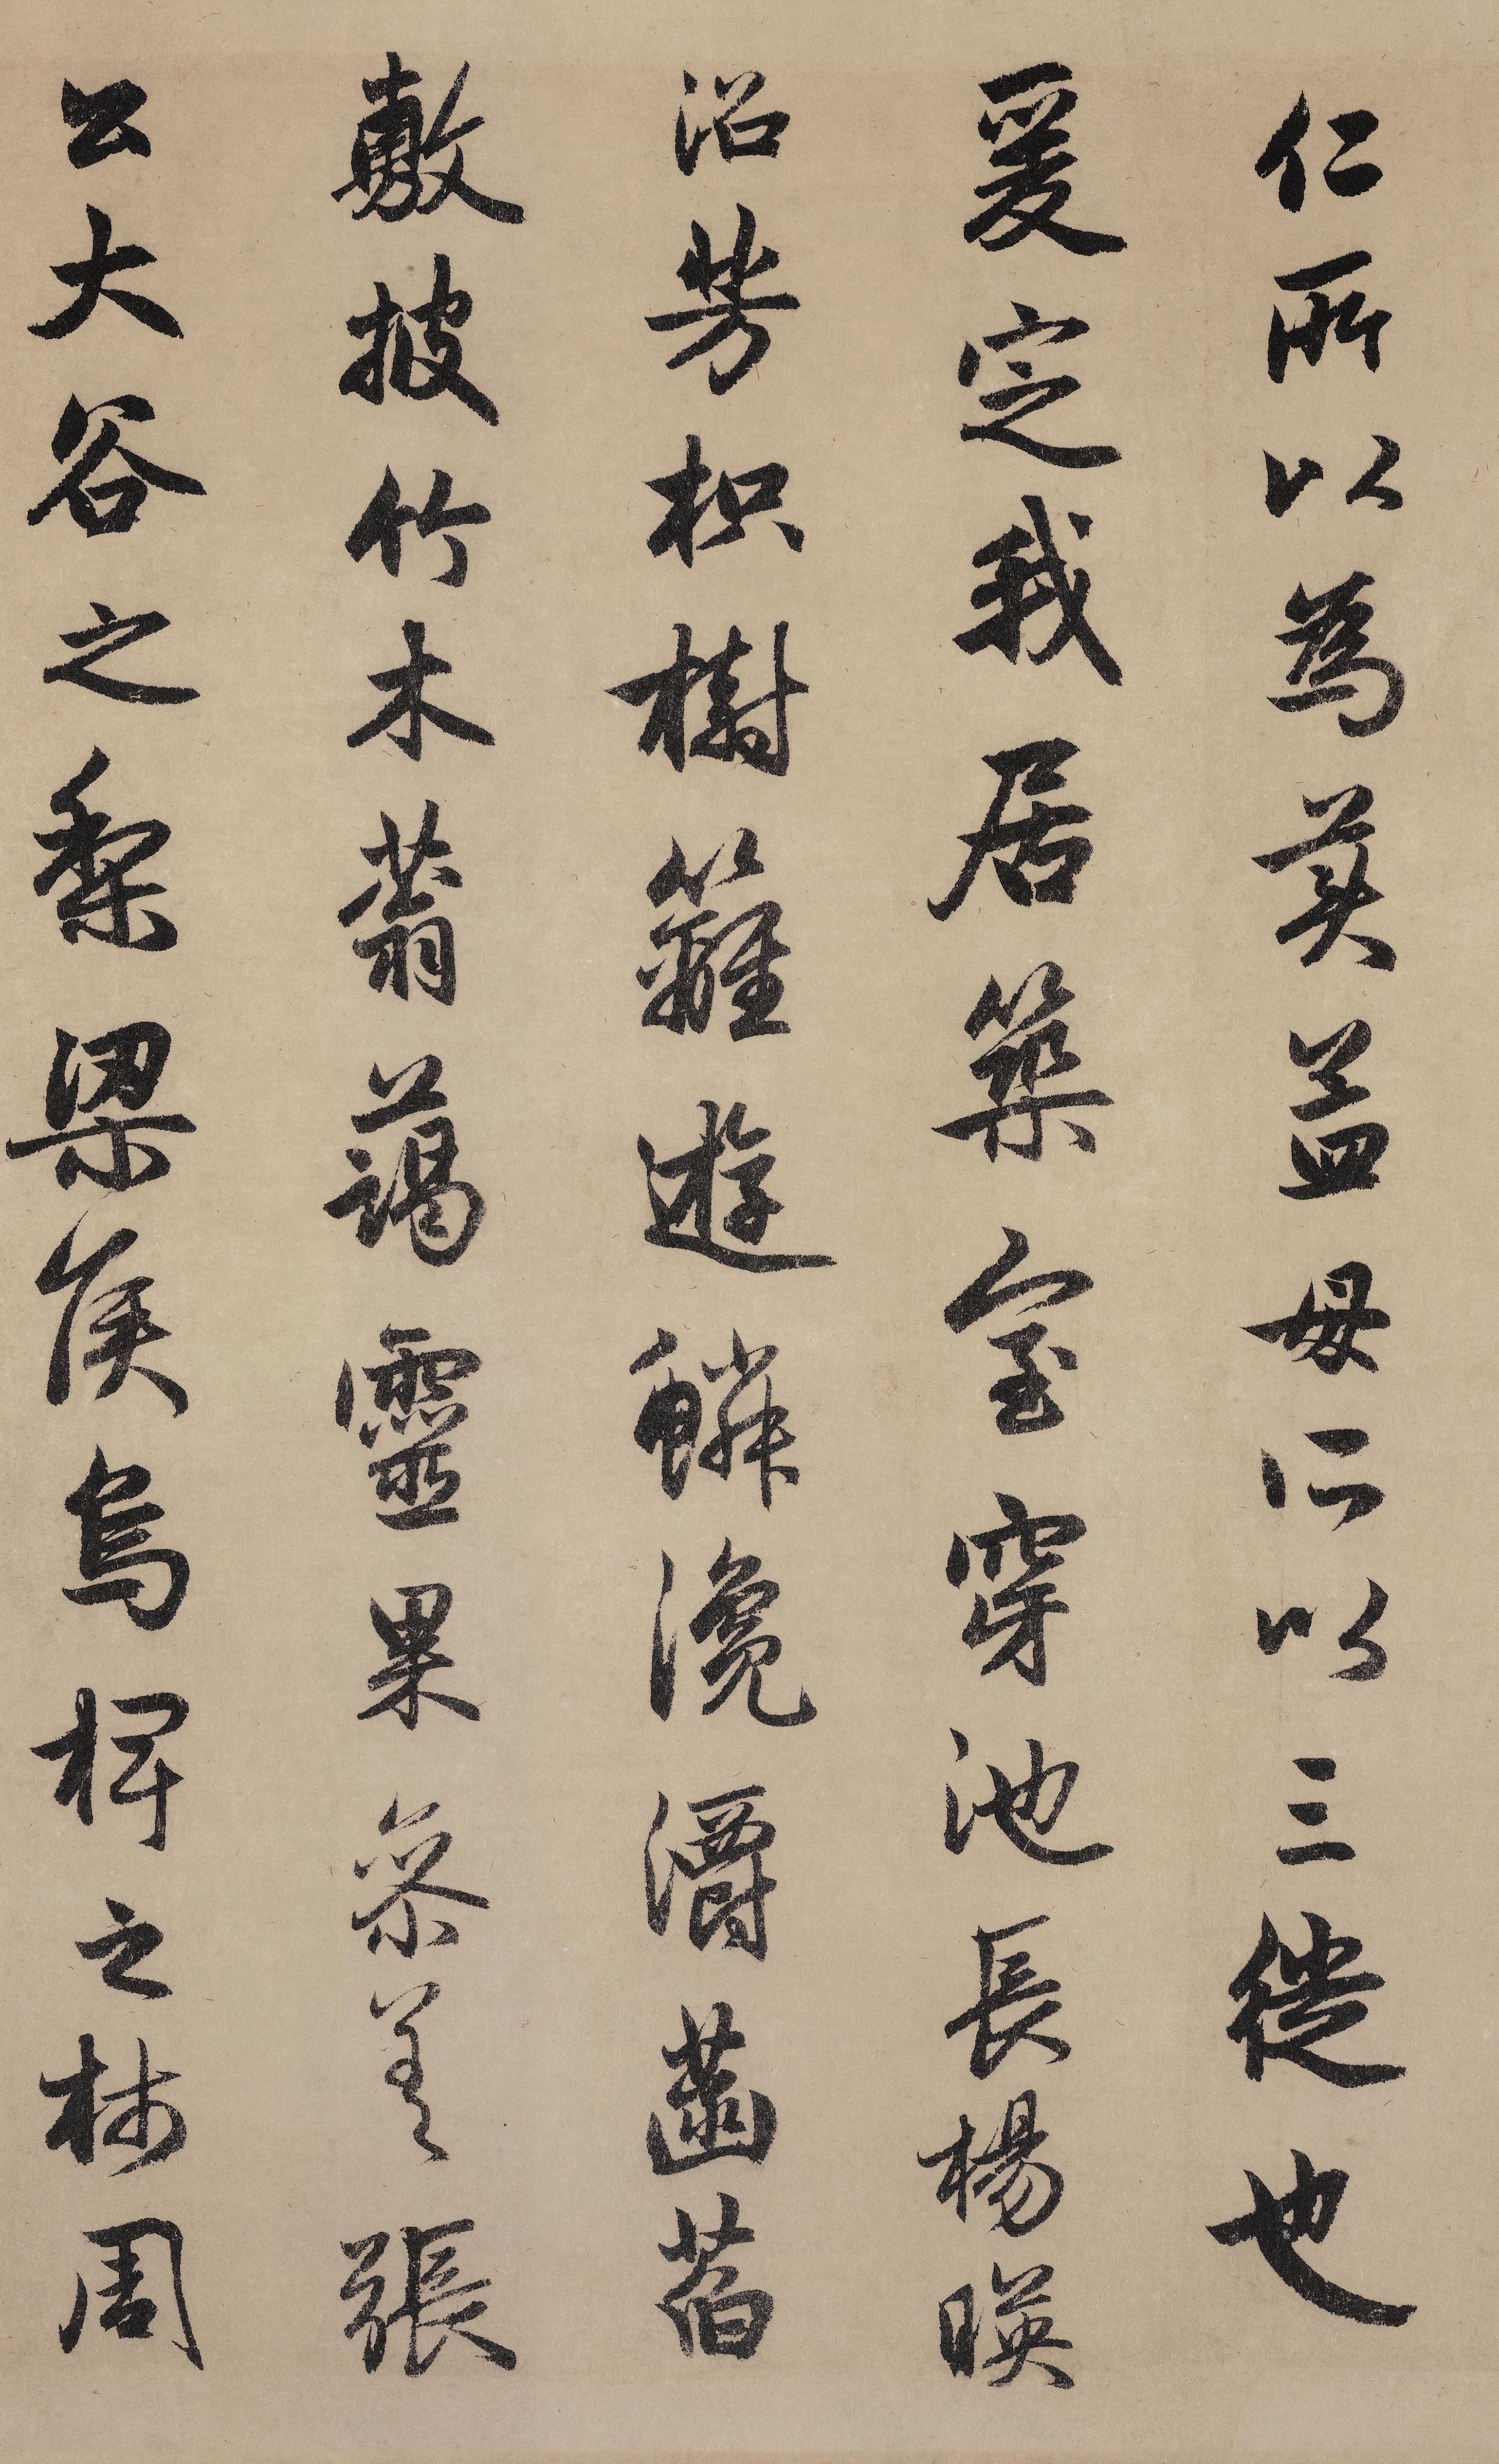 仁所以為美孟母所以三徙也
爰定我居築室穿池長楊暎
沼芳枳樹籬遊鱗瀺灂菡萏
敷披竹木蓊藹靈果參差張
公大谷之梨梁侯烏椑之柿周